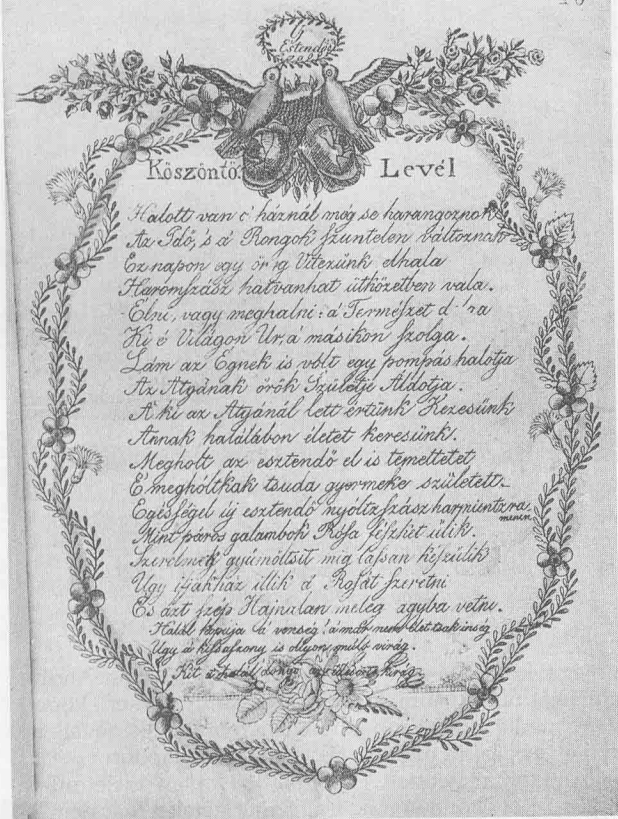 Új
Esztendői
Köszöntő Levél
Halott van e' háznál még se harangoznak
Az Idő, 's a' Rongok szüntelen változnak
Ez napon egy Vitézünk elhala
Háromszász hatvanhat ütközetben vala.
Élni, vagy meghalni: a' Természet
Ki é Világon Ur, a' másikon szolga.
Lám az Égnek is vólt egy pompás halotja
Az Atyának örök Szülötje Áldotja.
A ki az Atyánál lett értünk Kezesünk
Annak halálábon életet keresünk.
Megholt az esztendő el is temettetet
É meghóltkak tsuda gyermeke született
Egésségel új esztendő nyóltzszász
menen
Mint páros galambok Rósa fészket ülik.
Szerelmek gyümöltsit mig lassan készülik
Ugy ifjakház illik a' Rosát szeretni
És azt szép Hajnalan meleg agyba vetni.
Halál kapuja a' vénség! a már nem élet tsak inség
Ugy a kisaszony is ollyan muló virág.
Két